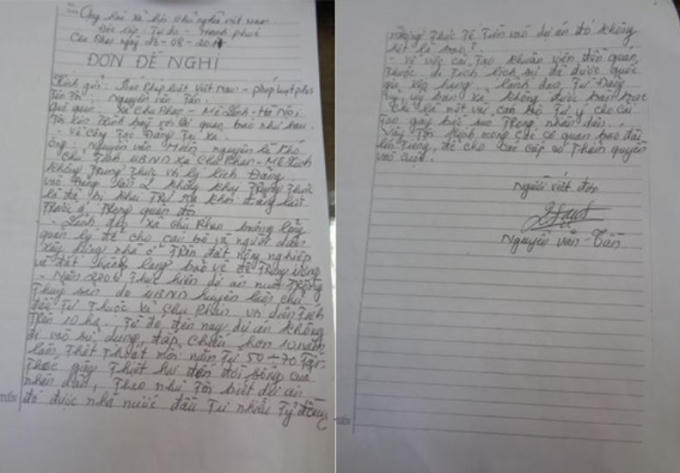 Cộng hòa xã hội chủ nghĩa việt Nam
Độc lập - Tự do - Hạnh phúc
Chu Phan ngày 26-08-2017
ĐƠN ĐỀ NGHỊ
Kính gửi: Báo pháp luật Việt Nam - pháp luật plus
Tên Tôi: Nguyễn văn Tân
Quê quán: Xã Chu Phan - Mê Linh - Hà Nội
Tôi kính trình bày với cơ quan báo như sau.
- Về công Tác Đảng Tại xã.
ông: Nguyễn văn nguyên là phó
Chủ Tịch UBND xã Chu Phan - Mê Linh
không Trung Thực về lý lịch Đảng
vào Đảng lần 2 không khai Trung Thực
là đã bị khai Trừ ra khỏi đảng
Trước ở Trong quân đội
- Lãnh đạo xã Chu Phan buông lỏng
quản lý để cho cán bộ và người dân
xây dựng nhà ở Trên đất nông nghiệp
và đất hành lang bảo vệ đê
- Năm 2006 Thực hiện dự án nuôi Trồng
Thủy sản do UBND huyện làm chủ
đầu Tư Thuộc xã Chu Phan với diện Tích
Trên 10 ha, Từ đó đến nay dự án không
đi vào sử dụng, đắp chiếu hơn 10 năm
làm Thất Thoát mỗi năm Từ 50-70 Tấn
Thóc gây Thiệt hại đến đời sống của
nhân dân, Theo như Tôi biết dự án
đó được nhà nước đầu Tư nhiều Tỷ đồng
nhưng Thực Tế Tiền vào dự án đó không
biết là bao?
- Về việc cải Tạo khuôn viên đền quán
Thuộc di Tích lịch sử đã được quốc
gia xếp hạng. Lãnh đạo Tự
Trong ban xã không được bàn bạc
chỉ có một vài cán bộ Tự ý cho cải
Tạo gây bức xúc Trong nhân dân.
Vậy Tôi kính mong các cơ quan báo đài
lên Tiếng để cho các cấp có Thẩm quyền
vào cuộc.
Người viết đơn
Nguyễn văn - Tân